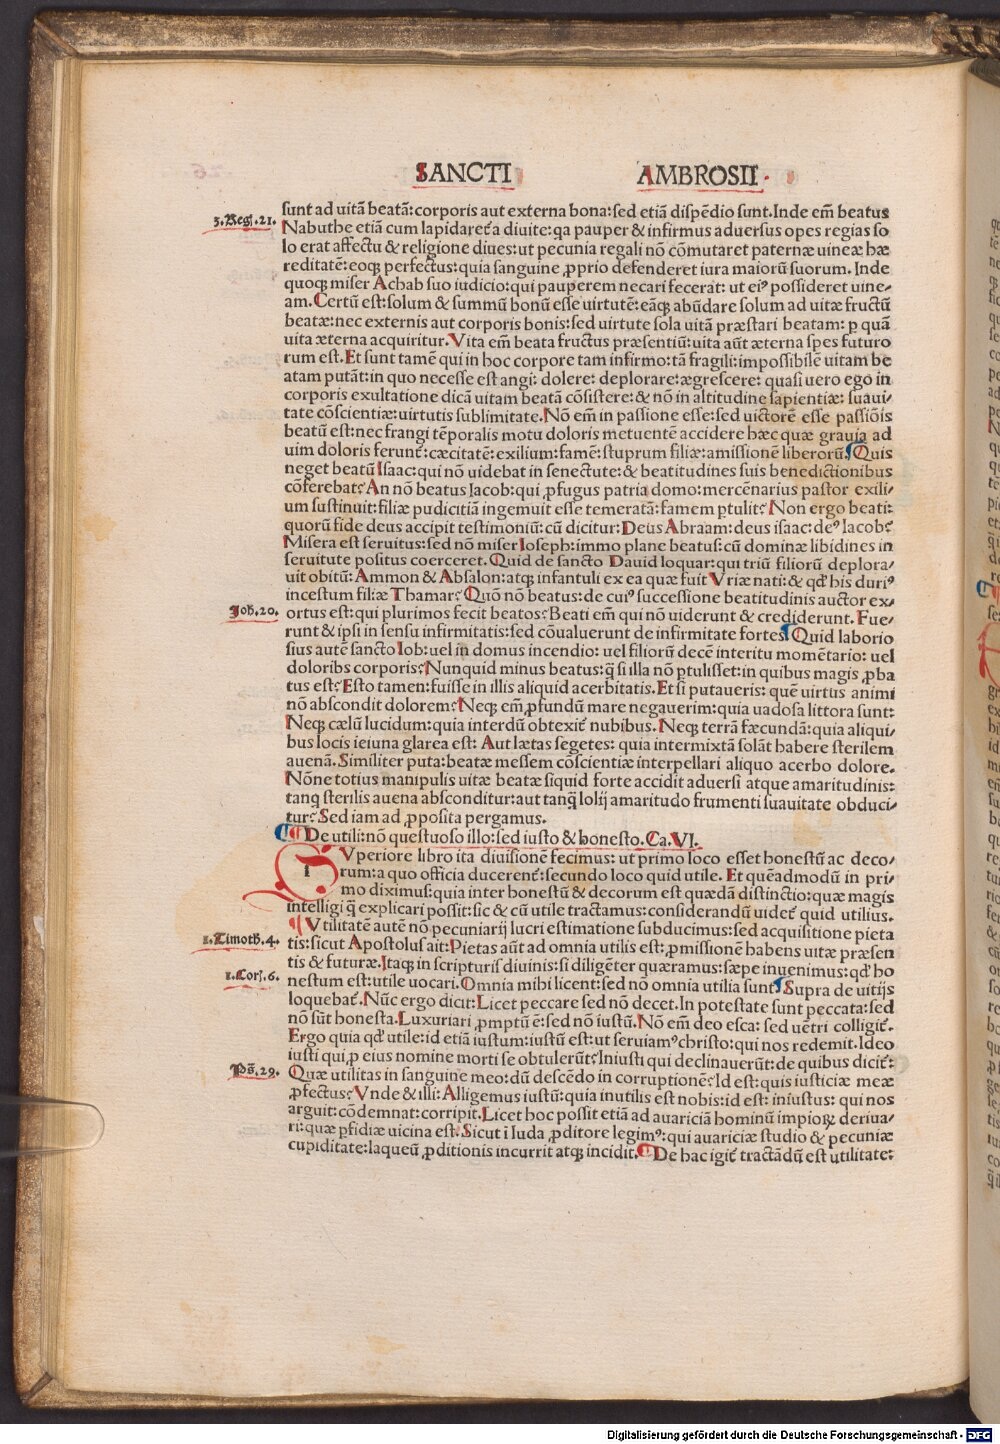 SANCTI AMBROSII.
sunt ad uitā beatā: corporis aut externa bona: sed etiā dispēdio sunt. Inde em̄ beatus
3. Reg̃. 21.
Nabuthe etiā cum lapidareťa diuite: qa pauper & infirmus aduersus opes regias so
lo erat affectu & religione diues: ut pecunia regali nō cōmutaret paternæ uineæ hæ
reditatē: eoqꝫ perfectus: quia sanguine ꝓprio defenderet iura maiorū suorum. Inde
quoqꝫ miser Achab suo iudicio: qui pauperem necari fecerat: ut eiꝰ possideret uine-
am. Certū est: solum & summū bonū esse uirtutē: eāqꝫ abūdare solum ad uitæ fructū
beatæ: nec externis aut corporis bonis: sed uirtute sola uitā præstari beatam: p̱ quā
uita æterna acquiritur. Vita em̄ beata fructus præsentiū: uita aūt æterna spes futuro
rum est. Et sunt tamē qui in hoc corpore tam infirmo: tā fragili: impossibilē uitam be
atam putāt: in quo necesse est angi: dolere: deplorare: ægrescere: quasi uero ego in
corporis exultatione dicā uitam beatā cōsistere: & nō in altitudine sapientiæ: suaui-
tate cōscientiæ: uirtutis sublimitate. Nō em̄ in passione esse: sed uictorē esse passiōis
beatū est: nec frangi tēporalis motu doloris metuentē accidere hæc quæ grauia ad
uim doloris ferunť: cæcitatē: exilium: famē: stuprum filiæ: amissionē liberorū. ¶Quis
neget beatū Isaac: qui nō uidebat in senectute: & beatitudines suis benedictionibus
cōferebat? An nō beatus Iacob: qui ꝓfugus patria domo: mercēnarius pastor exili-
um sustinuit: filiæ pudicitiā ingemuit esse temeratā: famem p̱tulit? Non ergo beati:
quorū fide deus accipit testimoniū: cū dicitur: Deus Abraam: deus isaac: deꝰ Iacob?
Misera est seruitus: sed nō miser Ioseph: immo plane beatus: cū dominæ libidines in
seruitute positus coerceret. Quid de sancto Dauid loquar: qui triū filiorū deplora-
uit obitū: Ammon & Absalon: atqꝫ infantuli ex ea quæ fuit Vriæ nati: & qď his duriꝰ
incestum filiæ Thamar? Quō nō beatus: de cuiꝰ successione beatitudinis auctor ex-
Joh. 20.
ortus est: qui plurimos fecit beatos? Beati em̄ qui nō uiderunt & crediderunt. Fue-
runt & ipsi in sensu infirmitatis: sed cōualuerunt de infirmitate fortes ¶Quid laborio
sius autē sancto Iob: uel in domus incendio: uel filiorū decē interitu momētario: uel
doloribs corporis? Nunquid minus beatus: q̄ si illa nō p̱tulisset: in quibus magis ꝓba
tus est? Esto tamen: fuisse in illis aliquid acerbitatis. Et si putaueris: quē uirtus animi
nō abscondit dolorem? Neqꝫ em̄ ꝓfundū mare negauerim: quia uadosa littora sunt:
Neqꝫ cælū lucidum: quia interdū obtexiť nubibus. Neqꝫ terrā fæcundā: quia aliqui-
bus locis ieiuna glarea est: Aut lætas segetes: quia intermixtā solāt habere sterilem
auenā. Similiter puta: beatæ messem cōscientiæ interpellari aliquo acerbo dolore.
Nōne totius manipulis uitæ beatæ siquid forte accidit aduersi atque amaritudinis:
tanq̄ sterilis auena absconditur: aut tanq̄ lolij amaritudo frumenti suauitate obduci-
tur? Sed iam ad ꝓposita pergamus.
¶¶ De utili: nō questuoso illo: sed iusto & honesto. Ca. VI.
SVperiore libro ita diuisionē fecimus: ut primo loco esset honestū ac deco-
rum: a quo officia ducerenť: secundo loco quid utile. Et quēadmodū in pri-
mo diximus: quia inter honestū & decorum est quædā distinctio: quæ magis
intelligi q̄ explicari possit: sic & cū utile tractamus: considerandū uideť quid utilius.
¶Vtilitatē autē nō pecuniarij lucri estimatione subducimus: sed acquisitione pieta
1. Timoth. 4.
tis: sicut Apostolus ait: Pietas aūt ad omnia utilis est: ꝓmissionē habens uitæ præsen
tis & futuræ. Itaqꝫ in scripturis diuinis: si diligēter quæramus: sæpe inuenimus: qď ho
1. Corꝭ. 6.
nestum est: utile uocari. Omnia mihi licent: sed nō omnia utilia sunt ¶Supra de uitijs
loquebať. Nūc ergo dicit: Licet peccare sed nō decet. In potestate sunt peccata: sed
nō sūt honesta. Luxuriari ꝓmptū ē: sed nō iustū. Nō em̄ deo esca: sed uētri colligiť.
Ergo quia qď utile: id etiā iustum: iustū est: ut seruiamꝰ christo: qui nos redemit. Ideo
iusti qui ꝓ eius nomine morti se obtulerūt? Iniusti qui declinauerūt: de quibus diciť:
Ps̄. 29.
Quæ utilitas in sanguine meo: dū descēdo in corruptionē? Id est: quis iusticiæ meæ
ꝓfectus? Vnde & illi: Alligemus iustū: quia inutilis est nobis: id est: iniustus: qui nos
arguit: cōdemnat: corripit. Licet hoc possit etiā ad auariciā hominū impioꝝ deriua-
ri: quæ p̱fidiæ uicina est. Sicut ī Iuda ꝓditore legimꝰ: qui auariciæ studio & pecuniæ
cupiditate: laqueū ꝓditionis incurrit atqꝫ incidit. ¶De hac igiť tractādū est utilitate:
Digitalisierung gefördert durch die Deutsche Forschungsgemeinschaft - DFG